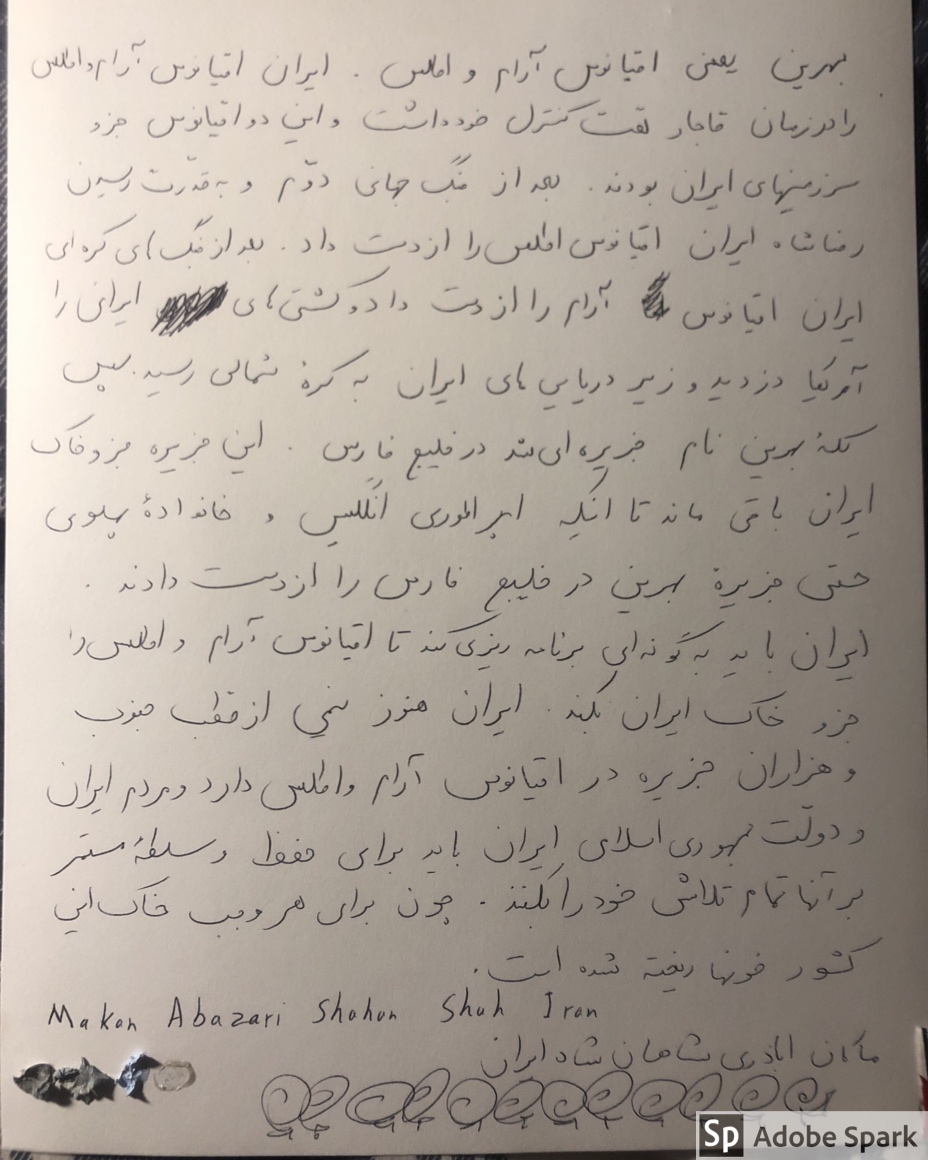 بهرین یعنی اقیانوس آرام و اطلس . ایران اقیانوس آرام و اطلس
را در زمان قاجار تحت کنترل خود داشت و این دو اقیانوس جزو
سرزمینهای ایران بودند . بعد از جنگ جهانی دوّم و به قدرت رسیدن
رضا شاه ایران اقیانوس اطلس را از دست داد . بعد از جنگ های کره ای
ایران اقیانوس آرام را از دست داد و کشتی های ایرانی را
آمریکا دزدید و زیر دریایی های ایران به کرهٔ شمالی رسید . سپس
کلمهٔ بهرین نام جزیره ای شد در خلیج فارس . این جزیره جزو خاک
ایران باقی ماند تا آنکه امپراطوری انگلیس و خانوادهٔ پهلوی
حتی جزیرهٔ بهرین در خلیج فارس را از دست دادند .
ایران باید به گونه ای برنامه ریزی کند تا اقیانوس آرام و اطلس را
جزو خاک ایران بکند . ایران هنوز نیمی از قطب جنوب
و هزاران جزیره در اقیانوس آرام و اطلس دارد و مردم ایران
و دولت جمهوری اسلامی ایران باید برای حفظ و سلطهٔ مستمر
بر آنها تمام تلاش خود را بکنند . چون برای هر وجب خاک این
کشور خونها ریخته شده است .
Makan Abazari Shahan Shah Iran
ماکان اباذری شاهان شاه ایران
Sp Adobe Spark